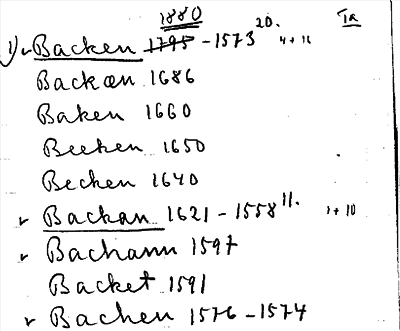 1880 20. Ia
1) Backen 1795 - 1573 4 + 16
Backæn 1686
Baken 1660
Beeken 1650
Becken 1640
Backan 1621 - 1558 11. 1 + 10
Bachann 1597
Backet 1591
Bachen 1576 - 1574